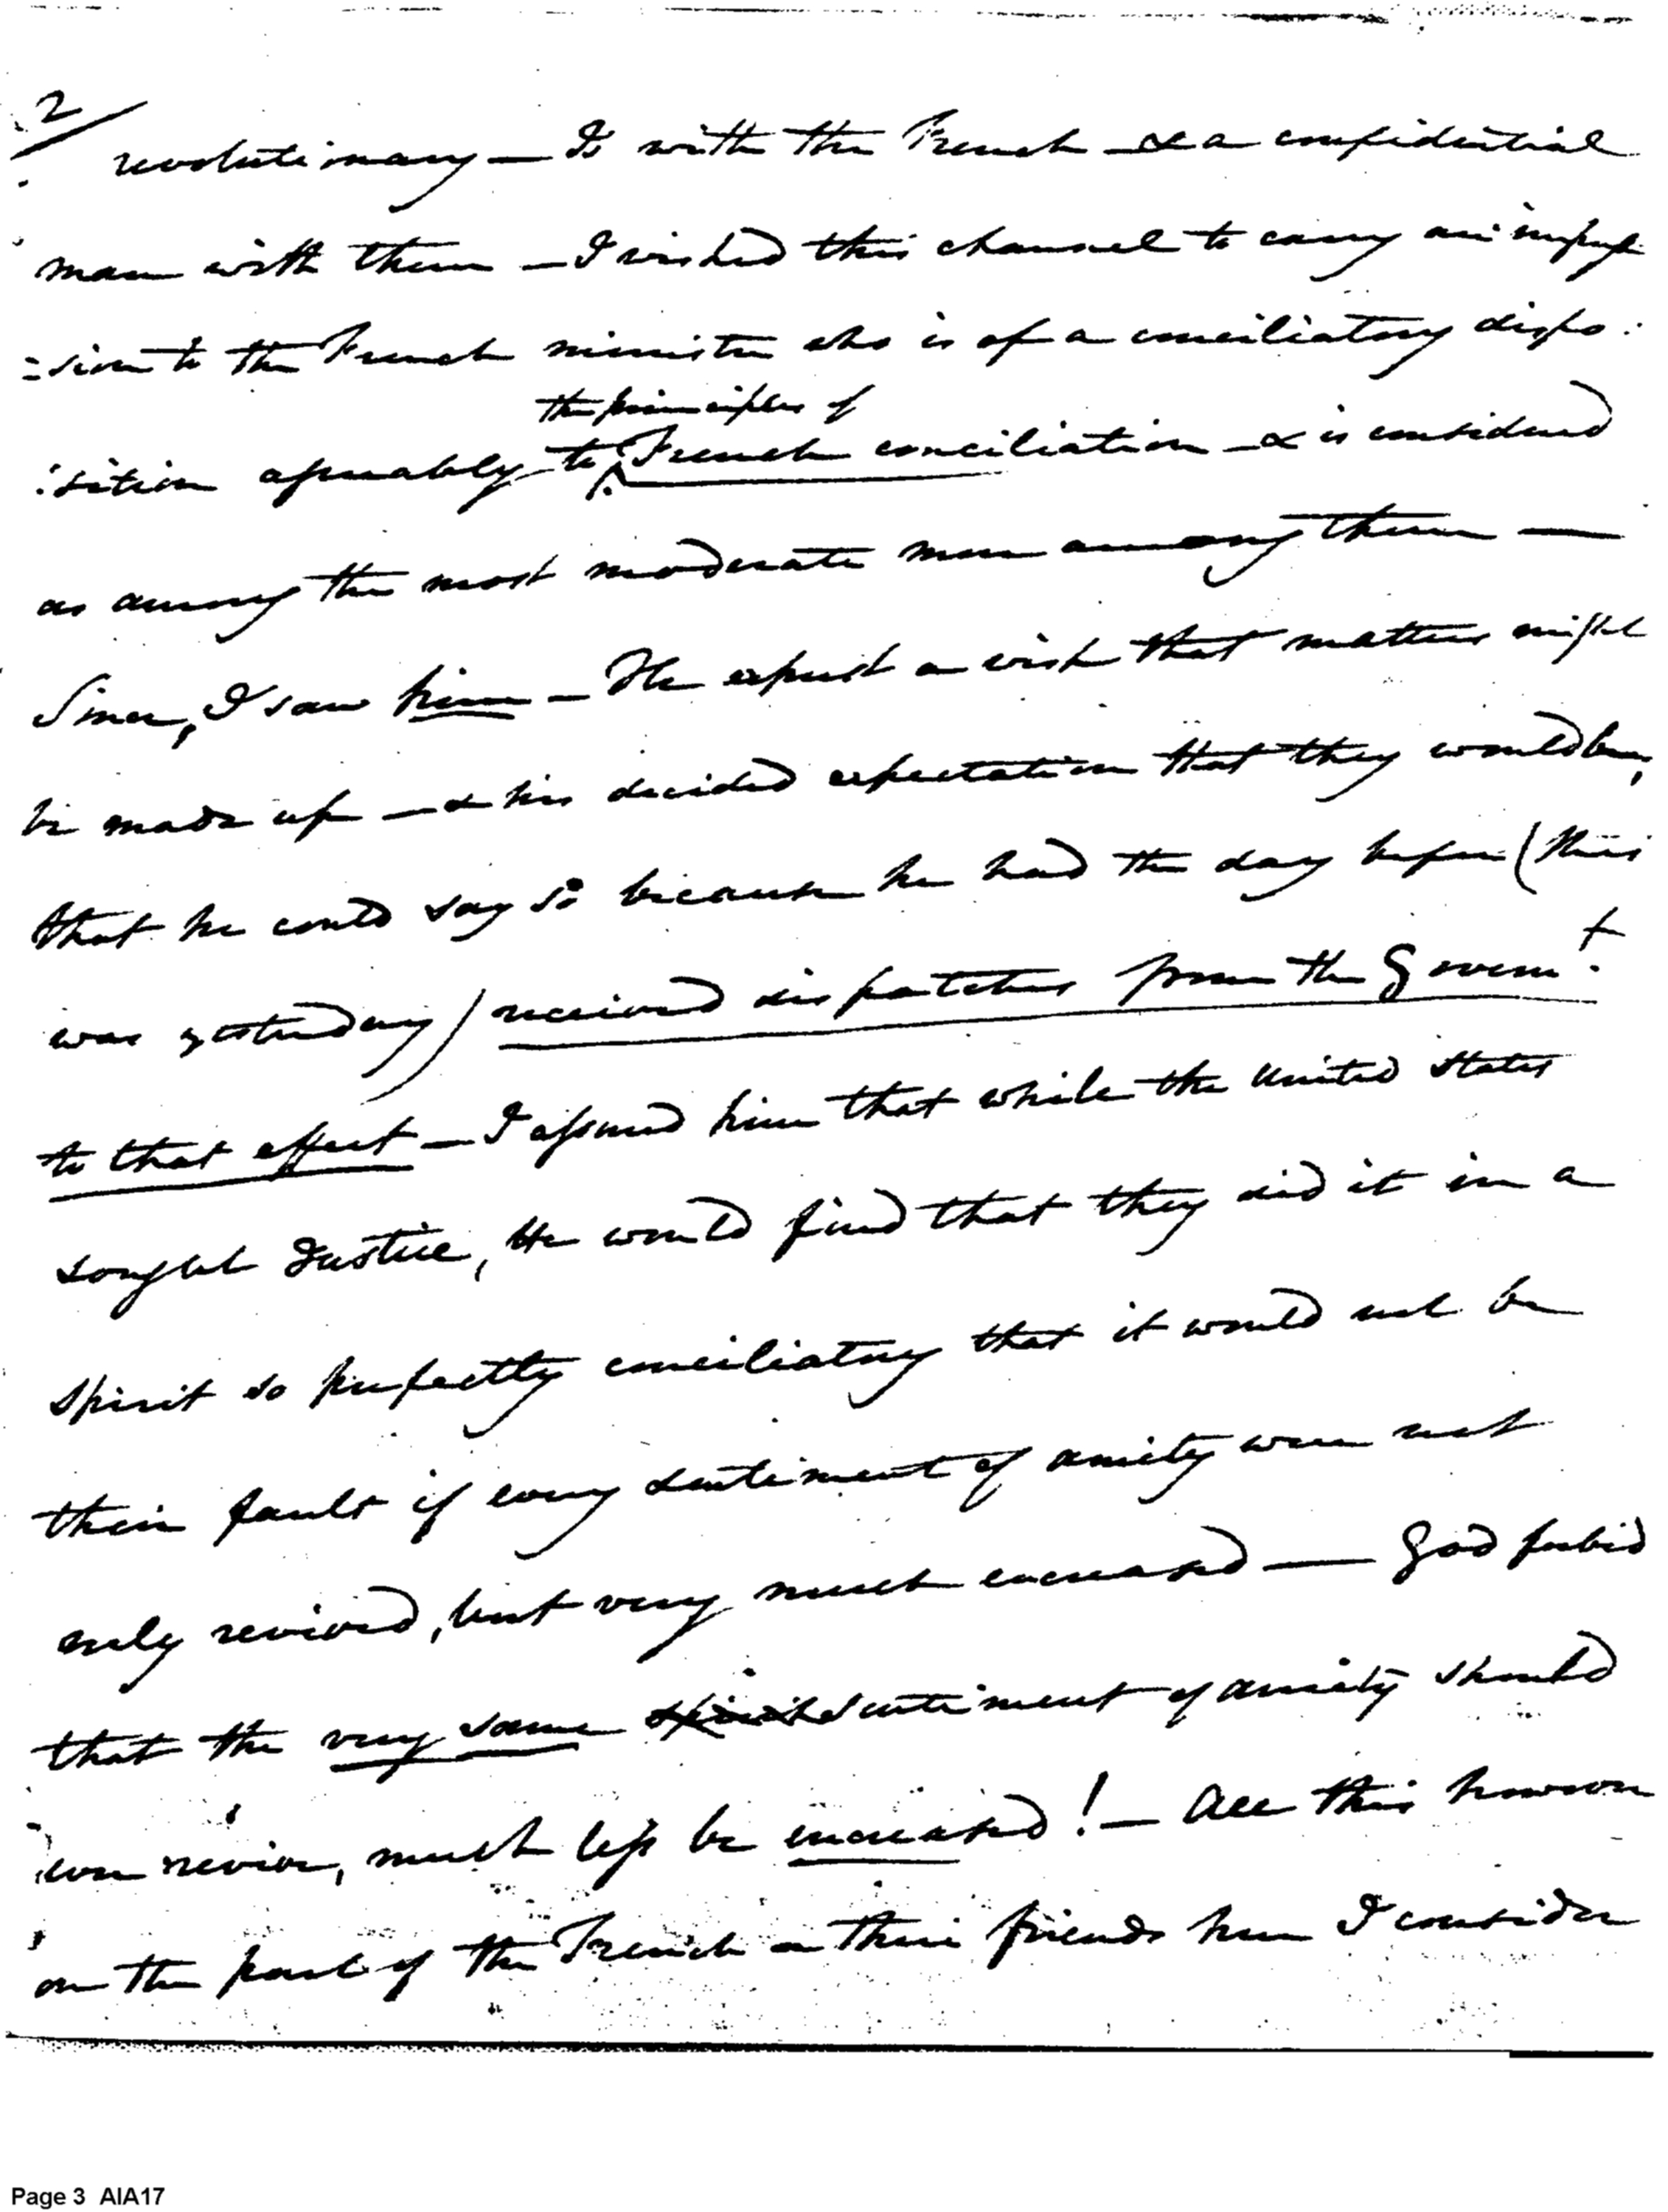 2/
revolutionary — Is with the French — & a confidential
man with them — I wished this channel to carry an impres
=sion to the French minister who is of a conciliatory dispo:
the principles of
:sition agreeably to ^ French conciliation — & is considered
as among the most moderate men among them —
Since, I saw him — He exprest a wish that matters might
be made up — & his decided expectation that they would be,
that he could say so because he had the day before (this
was yesterday) received dispatches from the Governt.
to that effect — I assured him that while the United States
sought Justice, He would find that they did it in a
spirit so perfectly conciliatory that it would not be
their fault if every sentiment of amity were not
only revived, but very much encreased — God forbid
that the very same spirit sentiment of amity should
ever revive, much less be encreased! — All this however
on the part of the French or their friends here I consider
Page 3 AIA17